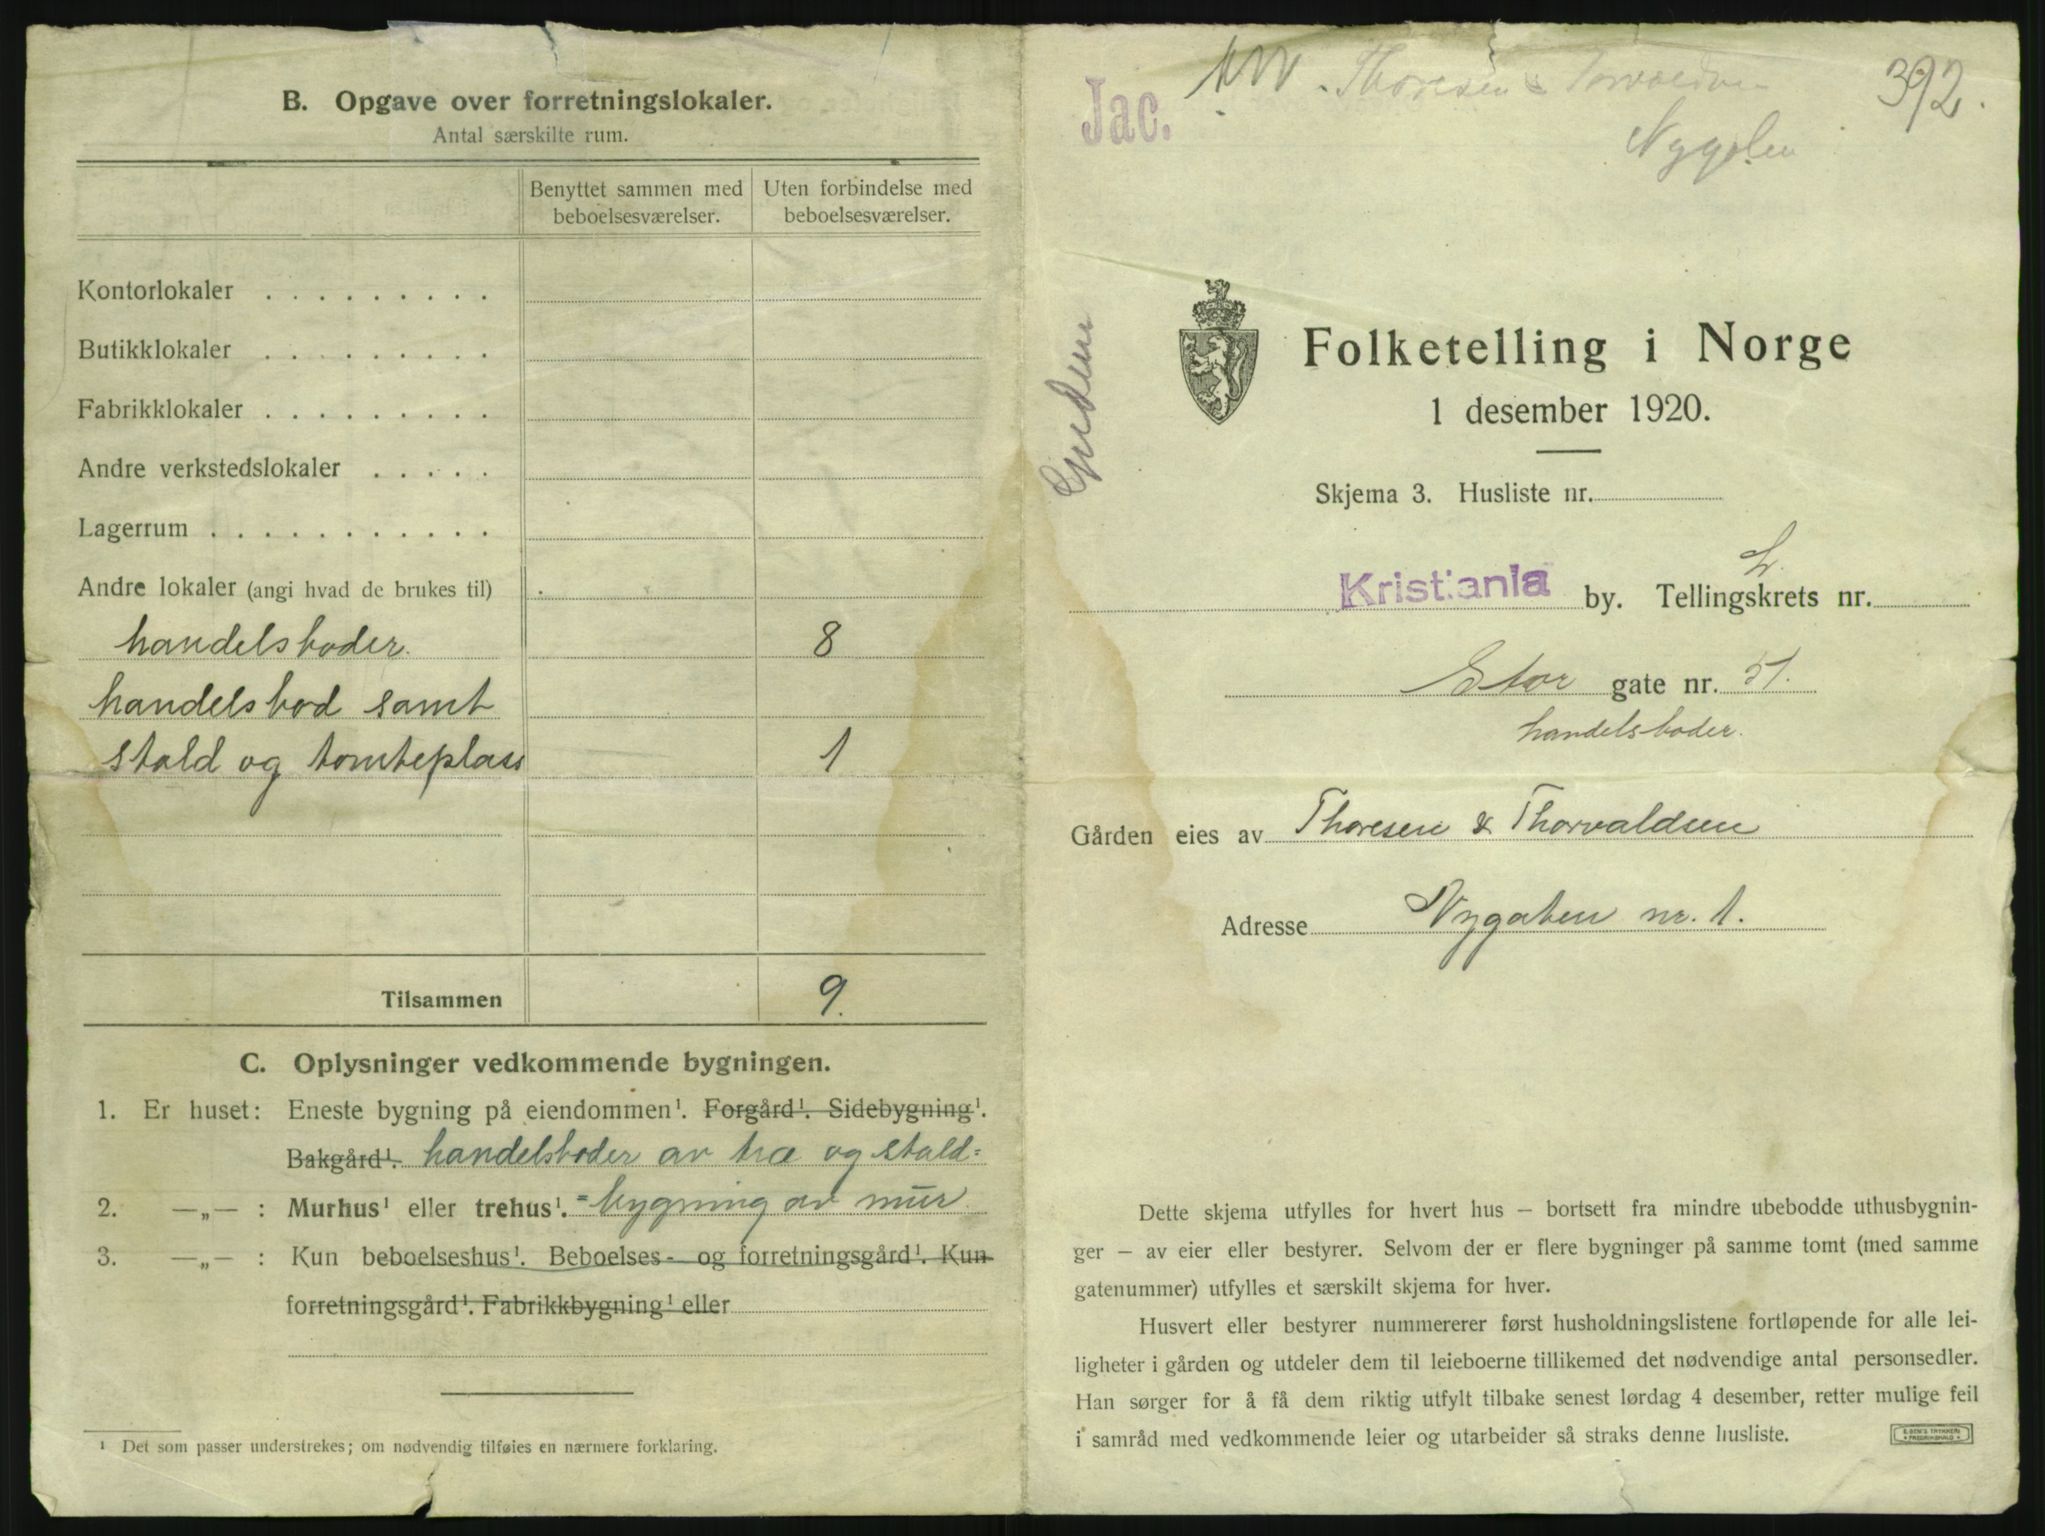 B. Opgave over forretningslokaler.
Antal særskilte rum.
Benyttet sammen med beboelsesværelser.
Uten forbindelse med beboelsesværelser.
Kontorlokaler . . . . . . . . .
Butikklokaler . . . . . . . . .
Fabrikklokaler . . . . . . . . .
Andre verkstedslokaler . . . . .
Lagerrum . . . . . . . . . . .
Andre lokaler (angi hvad de brukes til)
handelsboder. 8
handelsbod samt
stald og tomteplass 1
Tilsammen 9.
C. Oplysninger vedkommende bygningen.
1. Er huset: Eneste bygning på eiendommen¹. Forgård¹. Sidebygning¹.
Bakgård¹. handelsboder av træ og stald=
2. —„— : Murhus¹ eller trehus¹. =bygning av mur
3. —„— : Kun beboelseshus¹. Beboelses- og forretningsgård¹. Kun
forretningsgård¹. Fabrikkbygning¹ eller
¹ Det som passer understrekes; om nødvendig tilføies en nærmere forklaring.
Jac.
Thoresen & Torvaldsen
392.
Folketelling i Norge
1 desember 1920.
Skjema 3. Husliste nr.
Kristiania by. Tellingskrets nr. 2.
Stor gate nr. 51.
handelsboder.
Gården eies av Thoresen & Thorvaldsen
Adresse Nygaten nr. 1.
Dette skjema utfylles for hvert hus – bortsett fra mindre ubebodde uthusbygnin-
ger – av eier eller bestyrer. Selvom der er flere bygninger på samme tomt (med samme
gatenummer) utfylles et særskilt skjema for hver.
Husvert eller bestyrer nummererer først husholdningslistene fortløpende for alle lei-
ligheter i gården og utdeler dem til leieboerne tillikemed det nødvendige antal personsedler.
Han sørger for å få dem riktig utfylt tilbake senest lørdag 4 desember, retter mulige feil
i samråd med vedkommende leier og utarbeider så straks denne husliste.